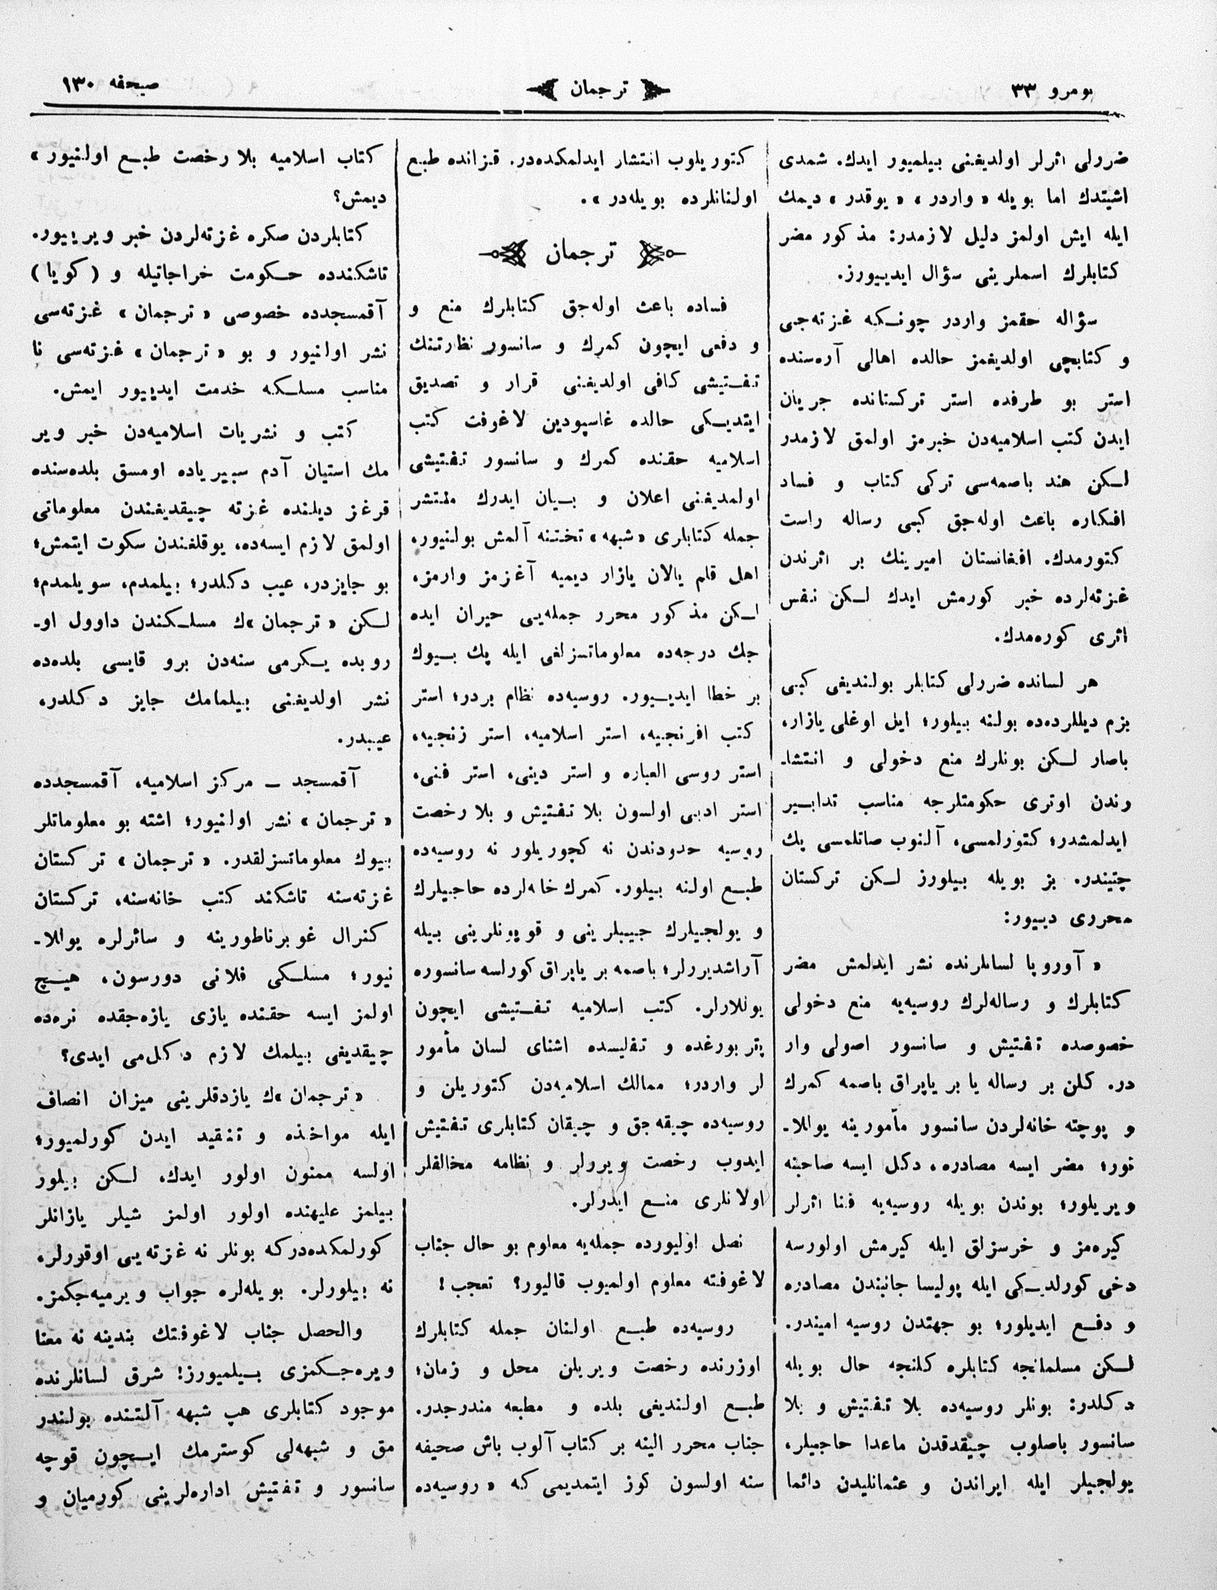 نومرو ٣٣
ترجمان
صحیفه ١٣٠
ضررلی اثرلر اولدیغنی بیلمیور ایدك. شمدی
اشیتدك اما بویله «واردر» «یوقدر» دیمك
ایله ایش اولمز دلیل لازمدر: مذكور مضر
كتابلرك اسملرینی سؤال ایدییورز.
سؤاله حقمز واردر چونـكه غزته‌جی
و كتابچی اولدیغمز حالده اهالی آره‌سنده
استر بو طرفده استر تركستانده جریان
ایدن كتب اسلامیه‌دن خبرمز اولمق لازمدر
لـكن هند باصمه‌سی تركی كتاب و فساد
افـكاره باعث اوله‌جق كبی رساله راست
كتورمدك. افغانستان امیرینك بر اثرندن
غزته‌لرده خبر كورمش ایدك لـكن نفس
اثری كوره‌مدك.
هر لسانده ضررلی كتابلر بولندیغی كبی
بزم دیللرده‌ده بولنه بیلور؛ ایل اوغلی یازار،
باصار لـكن بونلرك منع دخولی و انتشا-
رندن اوتری حكومتلرجه مناسب تدابیر
ایدلمشدر؛ كتورلمسی، آلنوب صاتلمسی پك
چتیندر. بز بویله بیلورز لـكن تركستان
محرری دییور:
« آوروپا لسانلرنده نشر ایدلمش مضر
كتابلرك و رساله‌لرك روسیه‌یه منع دخولی
خصوصده تفتیش و سانسور اصولی وار
در. كلن بر رساله یا بر یاپراق باصمه كمرك
و پوچته خانه‌لردن سانسور مأمورینه یوللا-
نور؛ مضر ایسه مصادره، دكل ایسه صاحبنه
ویریلور؛ بوندن بویله روسیه‌یه فنا اثرلر
كیره‌مز و خرسزلق ایله كیرمش اولورسه
دخی كورلدیـكی ایله پولیسا جانبندن مصادره
و دفـع ایدیلور؛ بو جهتدن روسیه امیندر.
لـكن مسلمانجه كتابلره كلنجه حال بویله
دكلدر: بونلر روسیه‌ده بلا تفتیش و بلا
سانسور باصلوب چیقدقدن ماعدا حاجیلر،
یولجیلر ایله ایراندن و عثمانلیدن دائما
كتوریلوب انتشار ایدلمكده‌در. قزانده طبع
اولنانلرده بویله‌در ».
ترجمان
فساده باعث اوله‌جق كتابلرك منع و
و دفعی ایچون كمرك و سانسور نظارتنك
تفـتیشی كافی اولدیغنی قرار و تصدیق
ایتدیـكی حالده غاسپودین لاغوفت كتب
اسلامیه حقنده كمرك و سانسور تفـتیشی
اولمدیغنی اعلان و بـیان ایدرك منتشر
جمله كتابلری «شبهه» تختنه آلمش بولنیور.
اهل قلم یالان یازار دیمیه آغزمز وارمز،
لـكن مذكور محرر جمله‌یی حیران ایده
جك درجه‌ده معلوماتسزلغی ایله پك بـیوك
بر خطا ایدیـیور. روسیه‌ده نظام بردر؛ استر
كتب افرنجیه، استر اسلامیه، استر زنجیه،
استر روسی العباره و استر دینی، استر فنی،
استر ادبی اولسون بلا تفتیش و بلا رخصت
روسیه حدودندن نه كچوریلور نه روسیه‌ده
طبـع اولنه بیلور. كمرك خانه‌لرده حاجیلرك
و یولجیلرك جیبلرینی و قویونلرینی بیله
آراشدیررلر؛ باصمه بر یاپراق كورلسه سانسوره
یوللارلر. كتب اسلامیه تفـتیشی ایچون
پتربورغده و تفلیسده اشنای لسان مأمور
لر واردر؛ ممالك اسلامیه‌دن كتوریلن و
روسیه‌ده چیقه‌جق و چیقان كتابلری تفـتیش
ایدوب رخصت ویرولر و نظامه مخالفلر
اولانلری منـع ایدرلر.
نصل اولیورده جمله‌یه معلوم بو حال جناب
لاغوفته معلوم اولمیوب قالیور؟ تعجب!
روسیه‌ده طبـع اولنان جمله كتابلرك
اوزرنده رخصت ویریلن محل و زمان؛
طبـع اولندیغی بلده و مطبعه مندرجدر.
جناب محرر الینه بر كتاب آلوب باش صحیفه
سنه اولسون كوز ایتمدیمی كه « روسیه‌ده
كتاب اسلامیه بلا رخصت طبـع اولنیور »
دیمش؟
كتابلردن صكره غزته‌لردن خبر ویرییور.
تاشكندده حـكومت خراجاتیله و (كویا)
آقمسجدده خصوصی «ترجمان» غزته‌سی
نشر اولنیور و بو «ترجمان» غزته‌سی نا
مناسب مسلـكه خدمت ایدییور ایمش.
كتب و نشریات اسلامیه‌دن خبر ویر
مك استیان آدم سیبریاده اومسق بلده‌سنده
قرغز دیلنده غزته چیقدیغندن معلوماتی
اولمق لازم ایسه‌ده، یوقلغندن سكوت ایتمش؛
بو جایزدر، عیب دكلدر؛ بیلمدم، سویلمدم؛
لـكن «ترجمان»ك مسلـكندن داوول او-
روبده یـكرمی سنه‌دن برو قایسی بلده‌ده
نشر اولدیغنی بیلمامك جایز دكلدر،
عیبدر.
آقمسجد – مركز اسلامیه، آقمسجدده
«ترجمان» نشر اولنیور؛ اشته بو معلوماتلر
بیوك معلوماتسزلقدر. «ترجمان» تركستان
غزته‌سنه تاشكند كتب خانه‌سنه، تركستان
كنرال غوبرناطورینه و سائرلره یوللا-
نیور؛ مسلـكی فلانی دورسون، هیـچ
اولمز ایسه حقنده یازی یازه‌جقده نره‌ده
چیقدیغی بیلمك لازم دكل‌می ایدی؟
«ترجمان»ك یازدقلرینی میزان انصاف
ایله مواخذه و تنقید ایدن كورلمیور؛
اولسه ممنون اولور ایدك، لـكن بیلور
بیلمز علیهنده اولور اولمز شیلر یازانلر
كورلمكده‌دركه بونلر نه غزته‌یی اوقورلر،
نه بیلورلر. بویله‌لره جواب ویرمیه‌جكمز.
والحصل جناب لاغوفتك بندینه نه معنا
ویره‌جـكمزی بـیلمیورز! شرق لسانلرنده
موجود كتابلری هپ شبهه آلتنده بولندر
مق و شبهه‌لی كوسترمك ایـچون قوجه
سانسور و تفتیش اداره‌لرینی كورمیان و